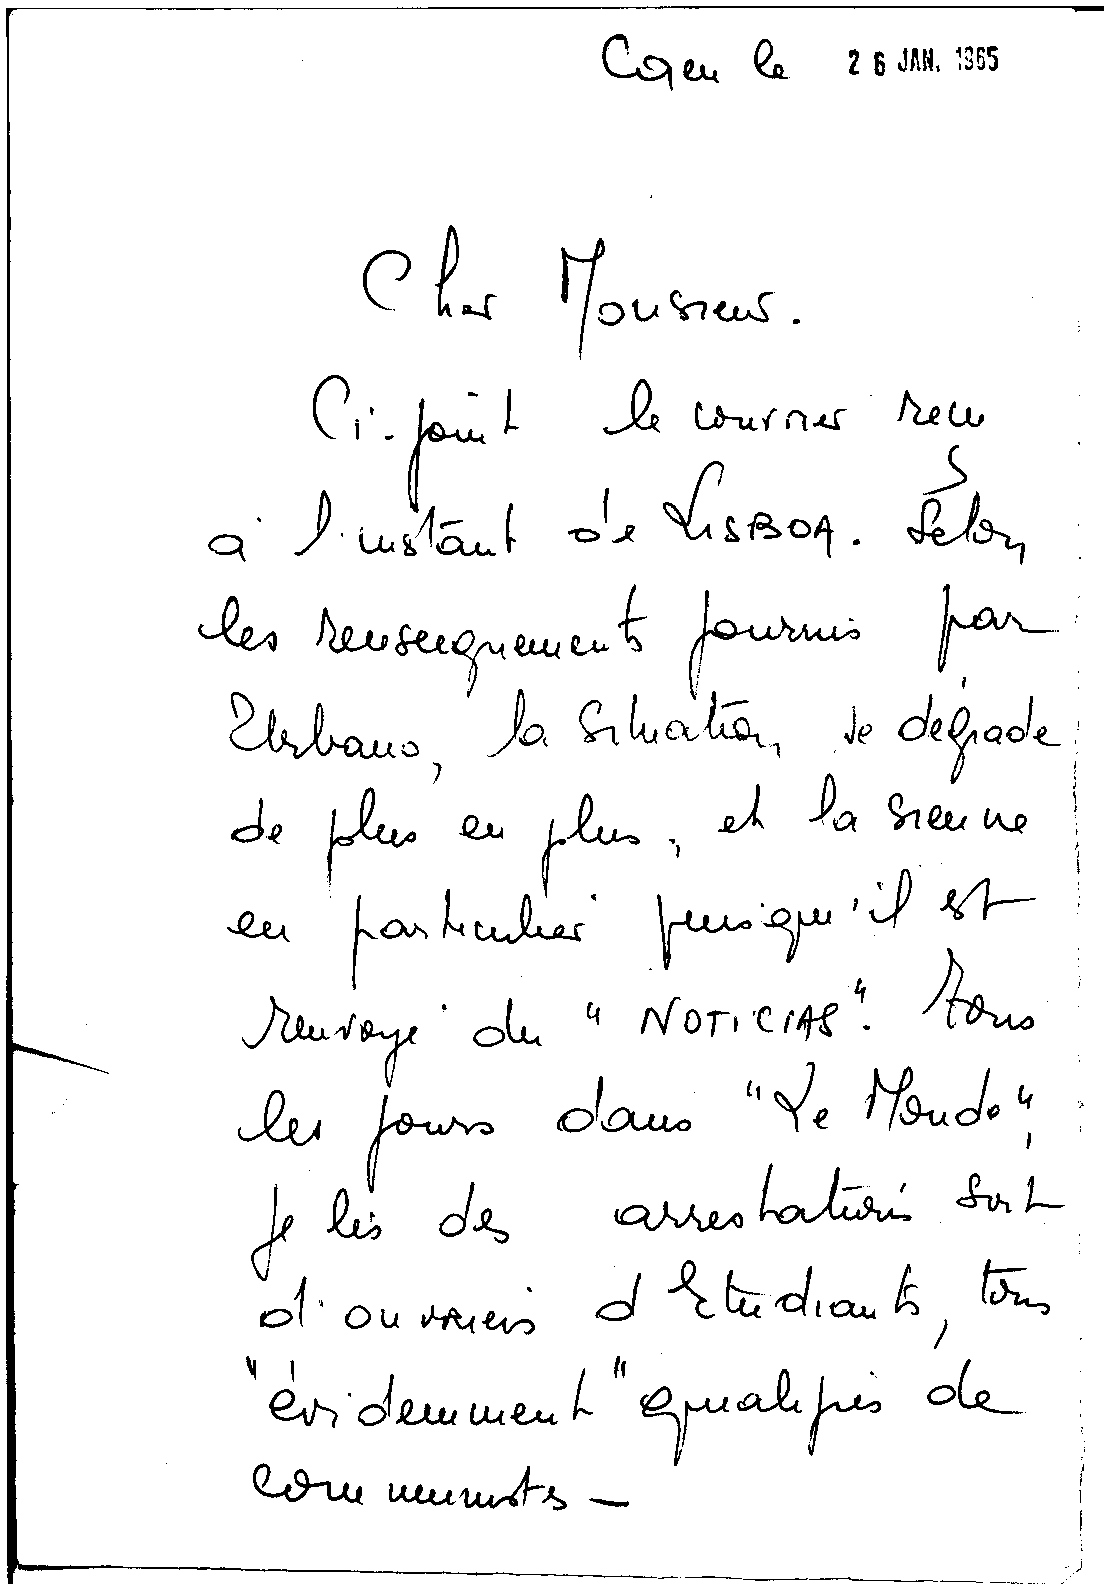 Caen le 26 JAN. 1965
Cher Monsieur.
Ci-joint le courrier reçu
à l'instant de LISBOA. Selon
les renseignements fournis par
Urbano, la situation se dégrade
de plus en plus, et la sienne
en particulier puisqu'il est
renvoyé du "NOTICIAS". Tous
les jours dans "Le Monde",
je lis des arrestations soit
d'ouvriers d'Etudiants, tous
"évidemment" qualifiés de
communistes —